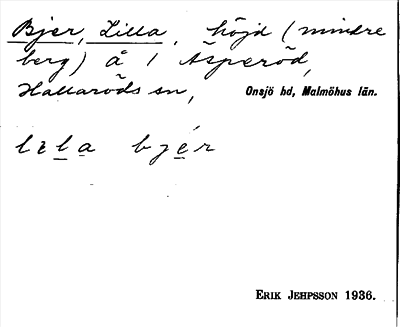 Bjer, Lilla, höjd (mindre
berg) å 1 Asperöd,
Hallaröds sn, Onsjö hd, Malmöhus län.
lɩla bjér
ERIK JEHPSSON 1936.